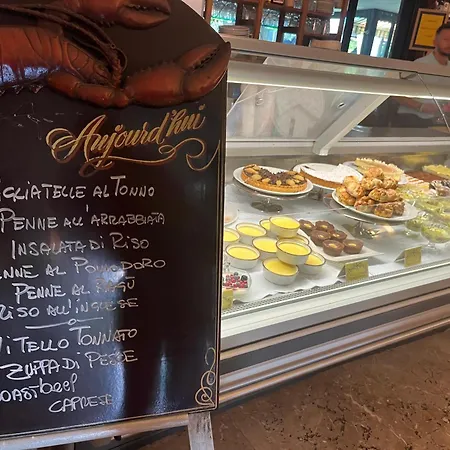 Aujourd'hui
GLIATELLE AL TONNO
PENNE ALL'ARRABBIATA
INSALATA DI RISO
NNE AL POMODORO
PENNE AL RAGÙ
RISO ALL'INGLESE
VITELLO TONNATO
ZUPPA DI PESCE
OASTBEEF
CAPRESE